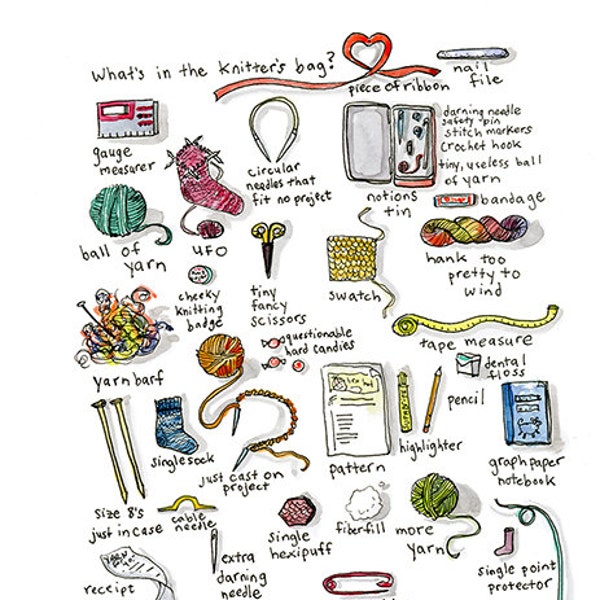 What's in the Knitter's bag?
piece of ribbon
nail
file
gauge
measurer
circular
needles that
fit no project
darning needle
safety pin
stitch markers
crochet hook
tiny, useless ball
of yarn
notions
tin
bandage
ball of
yarn
UFO
cheeky
knitting
badge
tiny
fancy
scissors
swatch
hank too
pretty to
wind
yarn barf
questionable
hard candies
tape measure
dental
floss
size 8's
just in case
single sock
just cast on
project
pattern
highlighter
pencil
graph paper
notebook
cable
needle
single
hexipuff
fiberfill
more
yarn
single point
protector
receipt
extra
darning
needle